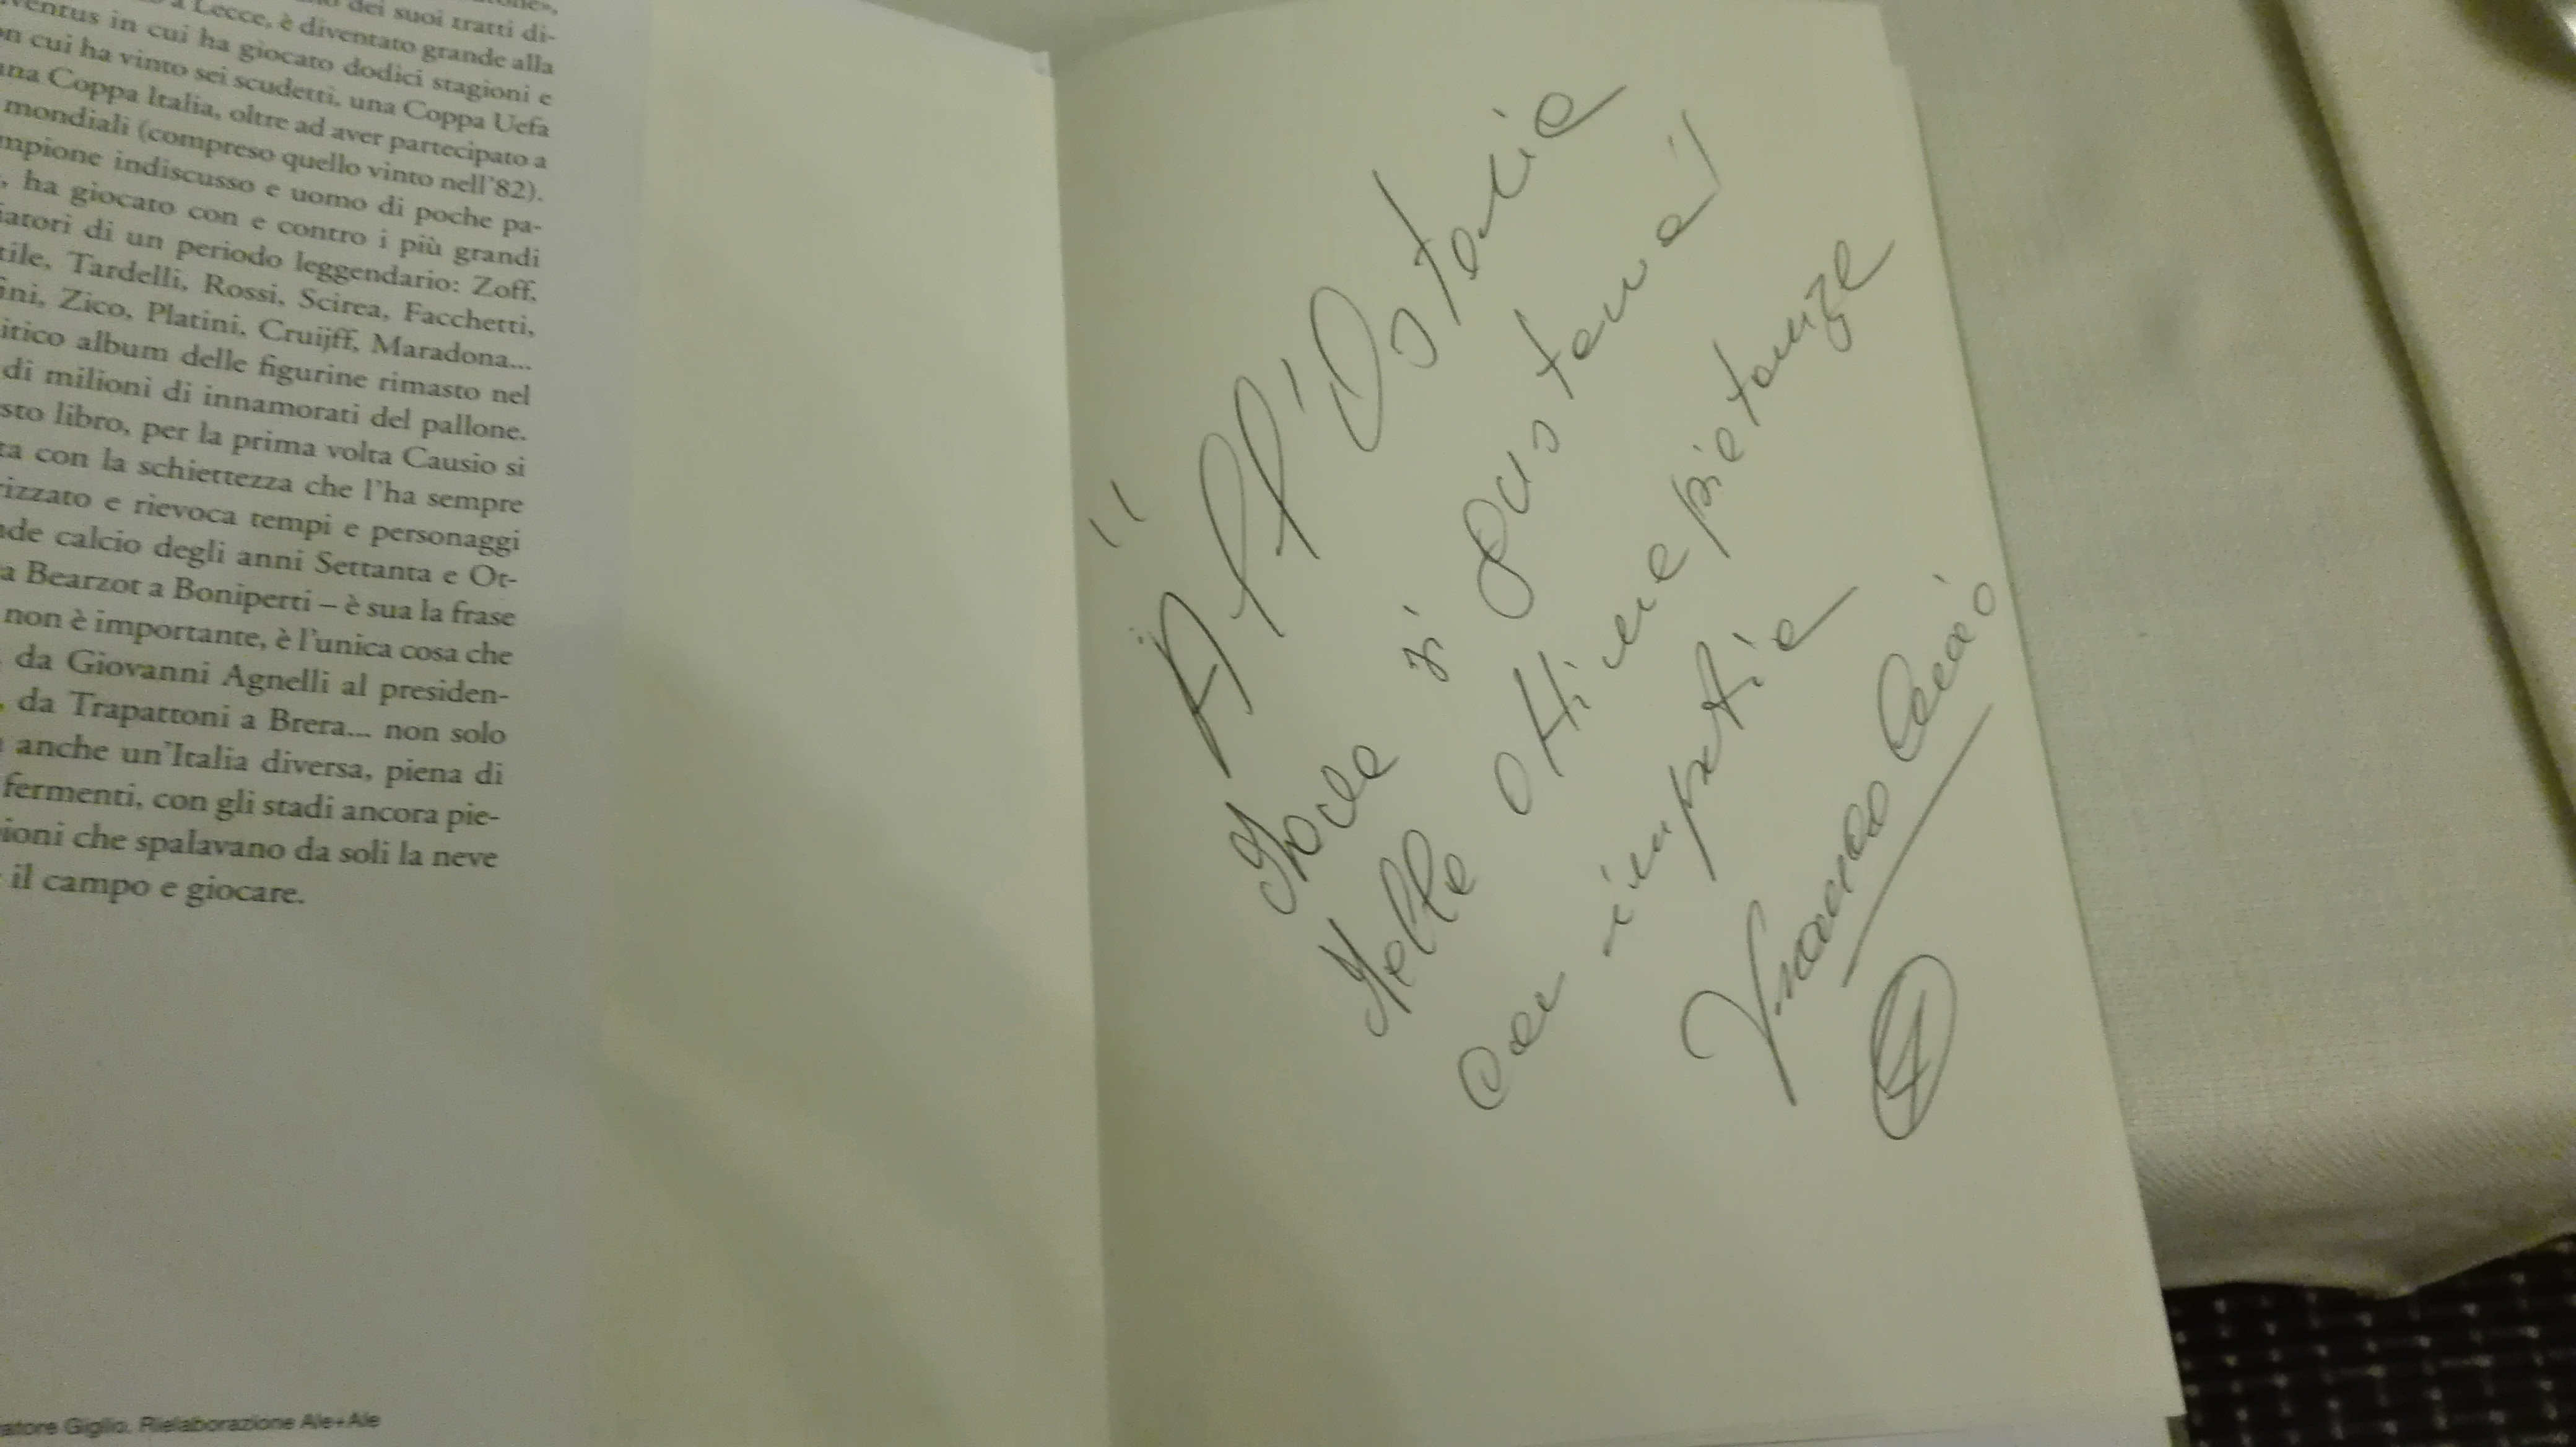 dei suoi tratti di-
a Lecce, è diventato grande alla
ventus in cui ha giocato dodici stagioni e
on cui ha vinto sei scudetti, una Coppa Uefa
una Coppa Italia, oltre ad aver partecipato a
mondiali (compreso quello vinto nell'82).
mpione indiscusso e uomo di poche pa-
, ha giocato con e contro i più grandi
iatori di un periodo leggendario: Zoff,
tile, Tardelli, Rossi, Scirea, Facchetti,
ini, Zico, Platini, Cruijff, Maradona...
itico album delle figurine rimasto nel
di milioni di innamorati del pallone.
sto libro, per la prima volta Causio si
ta con la schiettezza che l'ha sempre
rizzato e rievoca tempi e personaggi
nde calcio degli anni Settanta e Ot-
a Bearzot a Boniperti – è sua la frase
non è importante, è l'unica cosa che
, da Giovanni Agnelli al presiden-
, da Trapattoni a Brera... non solo
anche un'Italia diversa, piena di
fermenti, con gli stadi ancora pie-
ioni che spalavano da soli la neve
il campo e giocare.
atore Giglio. Rielaborazione Ale+Ale
"All'Osteria
si gustano
ottime pietanze
con simpatia
Causio